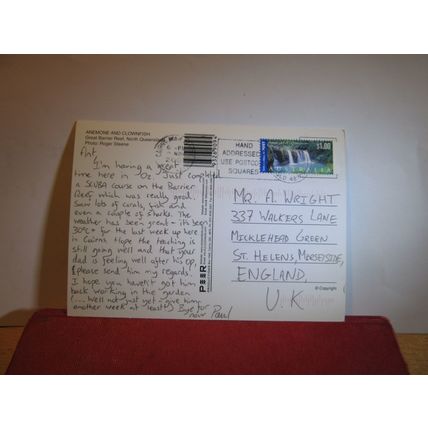 ANEMONE AND CLOWNFISH
Great Barrier Reef, North Queensland
Photo: Roger Steene
I'm having a great
time here in 'Oz'. Just completed
a SCUBA course on the Barrier
Reef which was really good.
Saw lots of corals, fish and
even a couple of sharks. The
weather has been great - its been
30°c+ for the last week up here
in Cairns. Hope the teaching is
still going well and that your
dad is feeling well after his op,
(please send him my regards.
I hope you haven't got him
back working in the garden
(... well not just yet - give him
another week at least!) Bye for
now Paul
HAND
ADDRESSED
USE POSTCODE
SQUARES
$1.00
AUSTRALIA
MR. A. WRIGHT
337 WALKERS LANE
MICKLEHEAD GREEN
ST. HELENS, MERSEYSIDE,
ENGLAND,
U.K
PEER
© Copyright